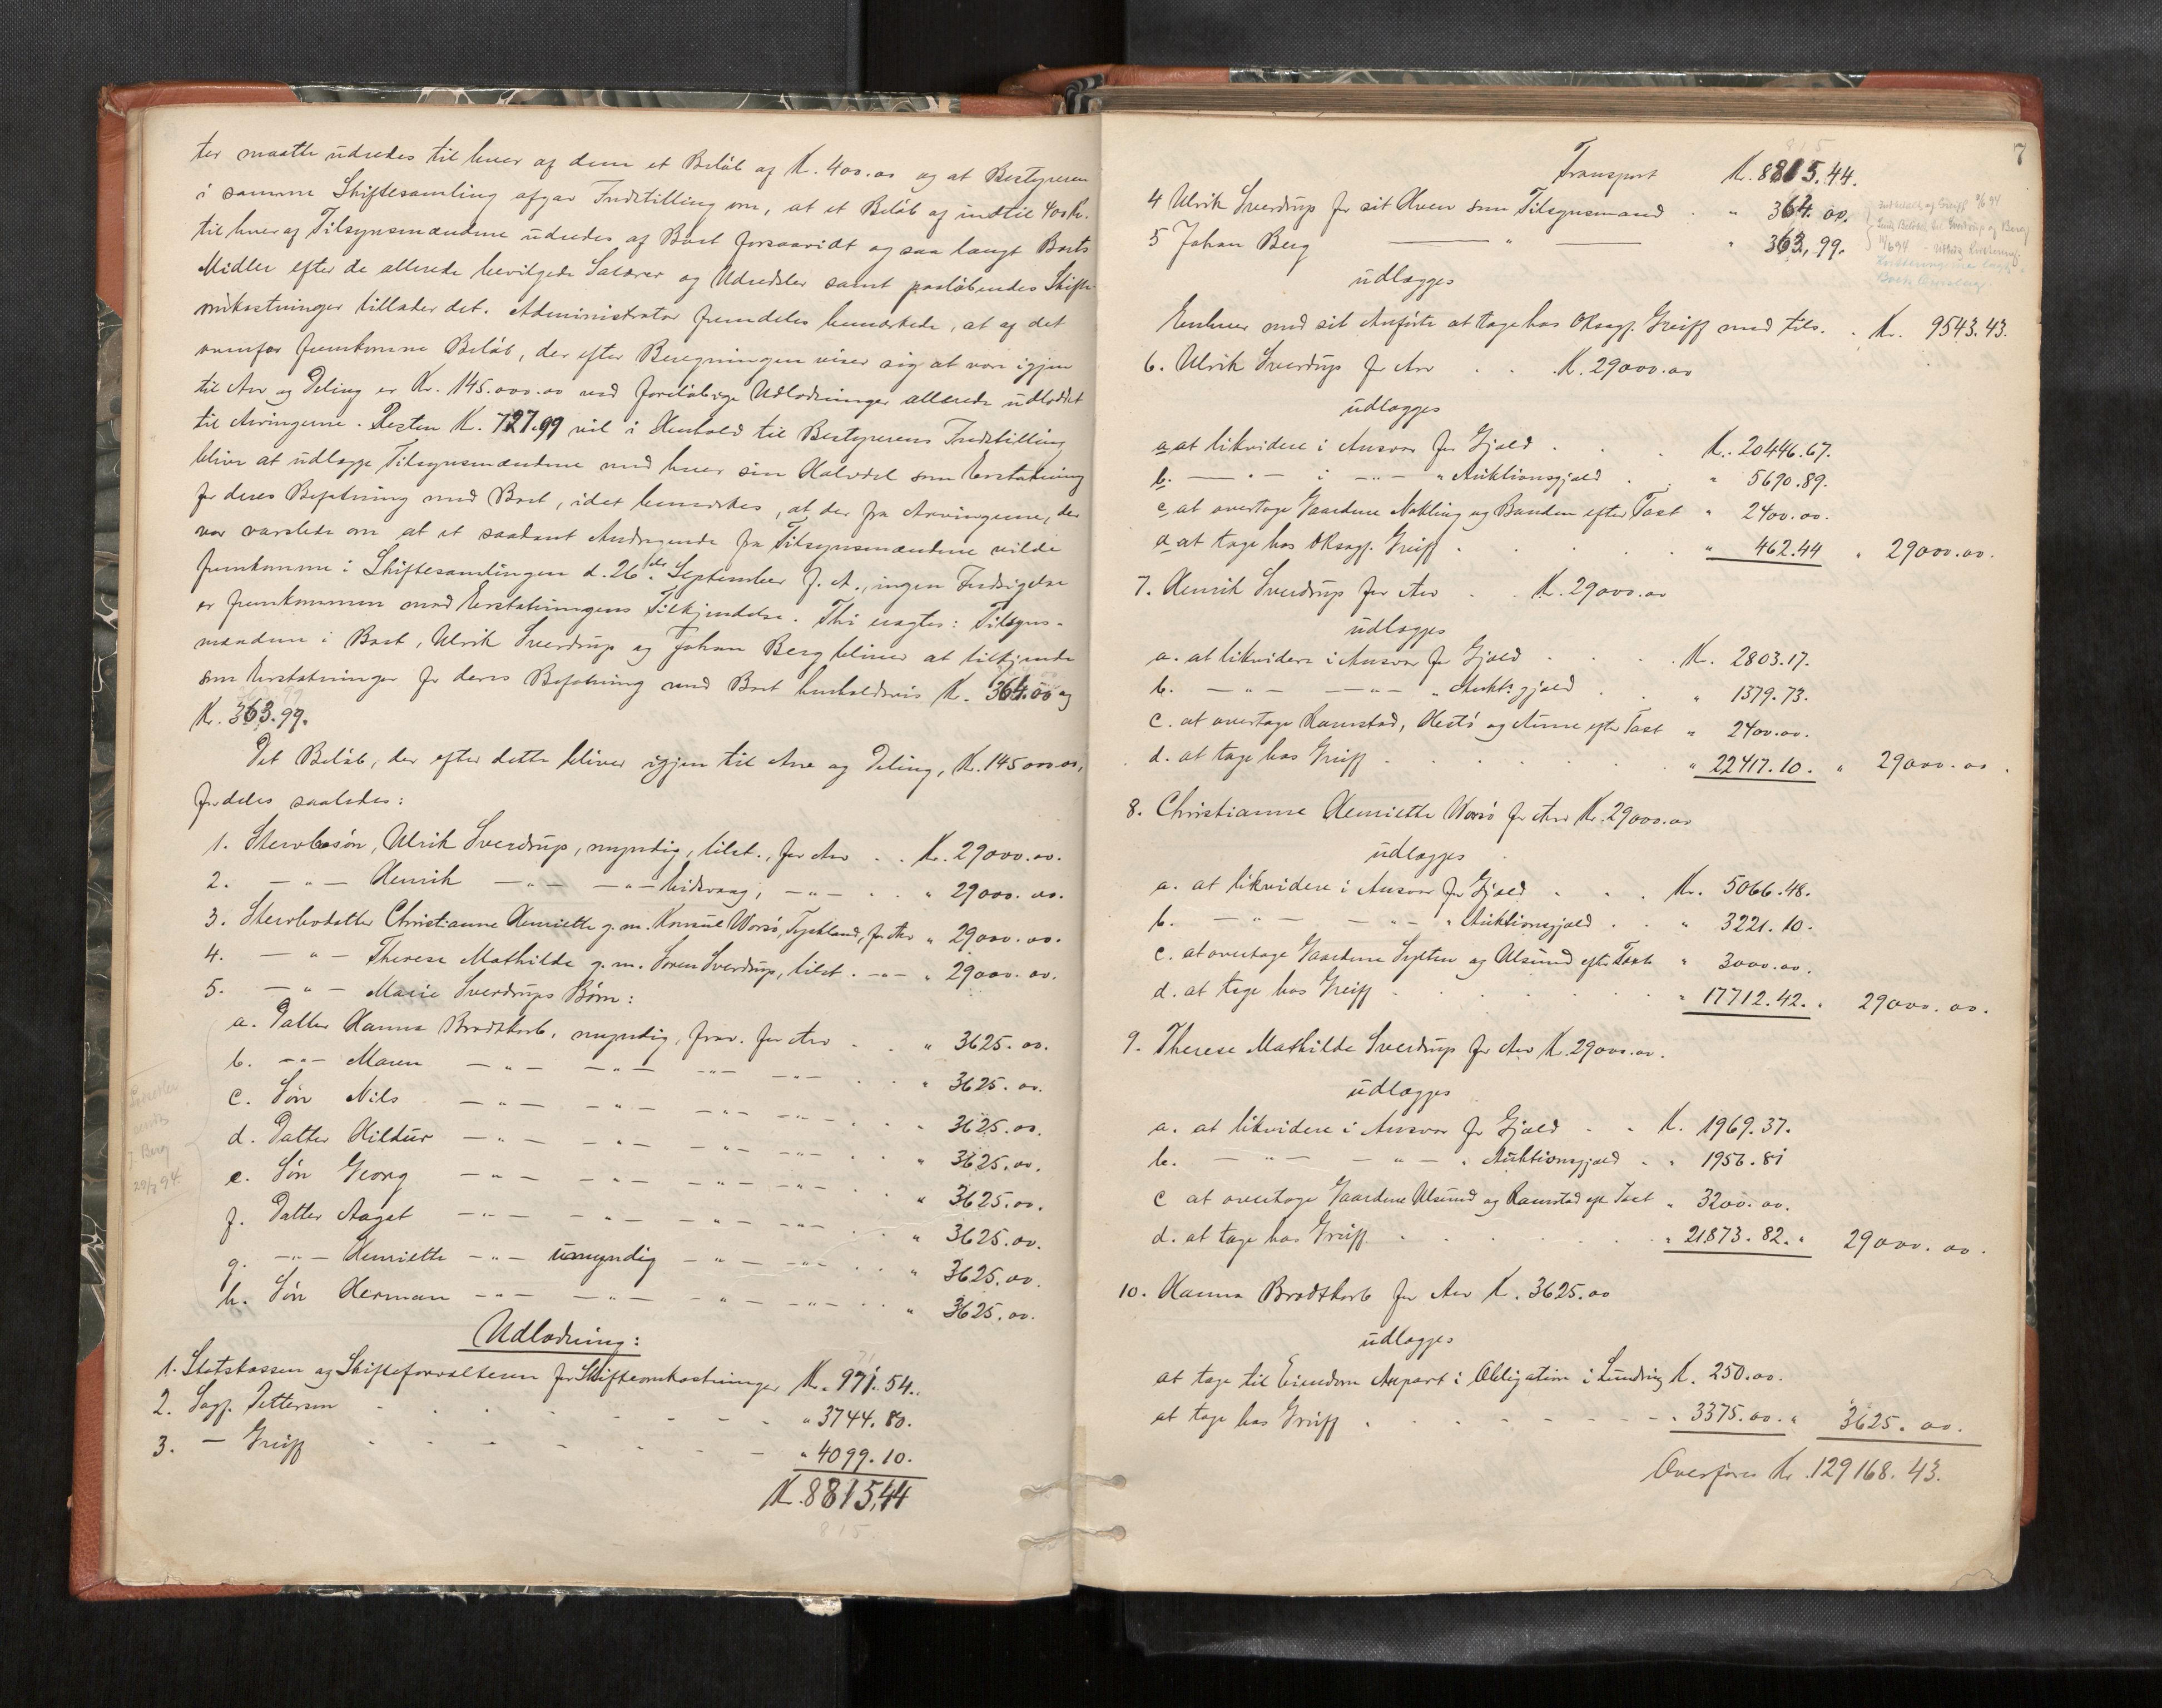 ter maatte udredes til hver af dem et Beløb af K. 400.00 og at Bestyreren
i samme Skiftesamling afgav Indstilling om, at et Beløb af indtil 400 Kr.
til hver af Tilsynsmændene udredes af Boet forsaavidt og saa langt Boets
Midler efter de allerede bevilgede Salærer og Udredsler samt paaløbendes Skifte-
omkostninger tillader det. Administrator fremdeles bemærkede, at af det
ovenfor fremkomne Beløb, der efter Beregningen viser sig at være igjen
til Arv og Deling er Kr. 145.000.00 ved foreløbige Udlodninger allerede udloddet
til Arvingerne. Resten K. 727.99 vil i Henhold til Bestyrerens Indstilling
blive at udlægge Tilsynsmændene med hver sin Halvdel som Erstatning
for deres Befatning med Boet, idet bemærkes, at der fra Arvingerne, der
var varslede om at et saadant Andragende fra Tilsynsmændene vilde
fremkomme i Skiftesamlingen d. 26de September f. A., ingen Indsigelse
er fremkommen mod Erstatningens Tilkjendelse. Thi eragtes: Tilsyns-
mændene i Boet, Ulrik Sverdrup og Johan Berg bliver at tilkjende
som Erstatninger for deres Befatning med Boet henholdsvis K. 364.00 og
Kr. 363.99.
Det Beløb, der efter dette bliver igjen til Arv og Deling, K. 145000.00,
fordeles saaledes:
1. Stervbosøn, Ulrik Sverdrup, myndig, tilst., for Arv . . Kr. 29000.00.
2. – " – Henrik – " – – " – hidvarg; – " – . . " 29000.00.
3. Stervbodatter Christianne Henriette g. m. Konsul Worsø, Tyskland, for Arv " 29000.00.
4. – " – Therese Mathilde g. m. Søren Sverdrup, tilst. – " – " 29000.00.
5. – " – Marie Sverdrups Børn:
a. Datter Hanna Brodtkorb, myndig, frav. for Arv . . " 3625.00.
b. – " – Maren – " – – " – – " – – " – . . " 3625.00.
c. Søn Nils – " – – " – – " – – " – . . " 3625.00.
d. Datter Hildur – " – – " – – " – – " – . . " 3625.00.
e. Søn Georg – " – – " – – " – – " – . . " 3625.00.
f. Datter Aagot – " – – " – – " – – " – . . " 3625.00.
g. – " – Henriette – " – umyndig – " – – " – . . " 3625.00.
h. Søn Herman – " – – " – – " – – " – . . " 3625.00.
Berg
29/3 94.
Udlodning:
1. Statskassen og Skifteforvalteren for Skifteomkostninger Kr. 971.54.
2. Sagf. Pettersen . . . . " 3744.80.
3. – Greiff . . . . " 4099.10.
K. 8815,44
815.
7
815
Transport K. 8815.44.
4 Ulrik Sverdrup for sit Hverv som Tilsynsmand . " 364.00.
5 Johan Berg — " — " 363,99.
udlægges
Enhver med sit Anførte at tage hos Oksagf. Greiff med tils. . Kr. 9543.43.
6. Ulrik Sverdrup for Arv . . K. 29000.00
udlægges
a at likvidere i Ansvar for Gjæld . . . K. 20446.67.
b. — " — i – " – " Auktionsgjæld . . " 5690.89.
c at overtage Gaardene Nekling og Banden efter Taxt " 2400.00.
d at tage hos Oksagf. Greiff . . . . " 462.44 " 29000.00.
7. Henrik Sverdrup for Arv . . Kr. 29000.00
udlægges
a. at likvidere i Ansvar for Gjæld . . . Kr. 2803.17.
b. – " – – " – " Aukt.gjæld . . " 1379.73.
c. at overtage Ramstad, Hestø og Aune efter Taxt " 2400.00.
d. at tage hos Greiff . . . . " 22417.10. " 29000.00.
8. Christianne Henriette Worsø for Arv Kr. 29000.00
udlægges
a. at likvidere i Ansvar for Gjæld . . . Kr. 5066.48.
b. – " – – " – " Auktionsgjæld . . " 3221.10.
c. at overtage Gaardene Sylten og Ulsund efter Taxt " 3000.00.
d. at tage hos Greiff . . . . " 17712.42. " 29000.00.
9. Therese Mathilde Sverdrup for Arv K. 29000.00.
udlægges
a. at likvidere i Ansvar for Gjæld . . K. 1969.37.
b. – " – – " – " Auktionsgjæld . . 1956.81
c at overtage Gaardene Ulsund og Ramstad eft. Taxt " 3200.00.
d. at tage hos Greiff . . . . " 21873.82. " 29000.00.
10. Hanna Brodtkorb for Arv K. 3625.00
udlægges
at tage til Eiendom Anpart i Obligation i Lunding K. 250.00.
at tage hos Greiff . . . . " 3375.00. " 3625.00.
Overføres Kr. 129168.43.